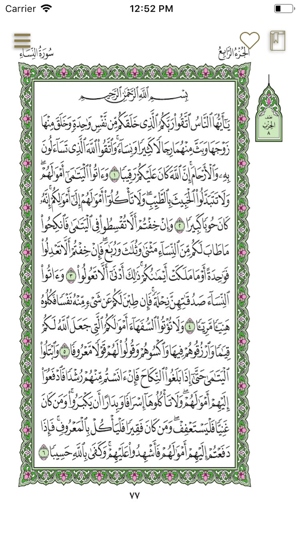 Carrier 12:52 PM
سُورَةُ النِّسَاءِ الجُزْءُ الرَّابِعُ
بِسْمِ اللَّهِ الرَّحْمَٰنِ الرَّحِيمِ
يَٰٓأَيُّهَا النَّاسُ اتَّقُوا۟ رَبَّكُمُ الَّذِى خَلَقَكُم مِّن نَّفْسٍ وَٰحِدَةٍ وَخَلَقَ مِنْهَا
زَوْجَهَا وَبَثَّ مِنْهُمَا رِجَالًا كَثِيرًا وَنِسَآءً وَاتَّقُوا۟ اللَّهَ الَّذِى تَسَآءَلُونَ
بِهِۦ وَالْأَرْحَامَ إِنَّ اللَّهَ كَانَ عَلَيْكُمْ رَقِيبًا ١ وَءَاتُوا۟ الْيَتَٰمَىٰٓ أَمْوَٰلَهُمْ
وَلَا تَتَبَدَّلُوا۟ الْخَبِيثَ بِالطَّيِّبِ وَلَا تَأْكُلُوٓا۟ أَمْوَٰلَهُمْ إِلَىٰٓ أَمْوَٰلِكُمْ إِنَّهُۥ
كَانَ حُوبًا كَبِيرًا ٢ وَإِنْ خِفْتُمْ أَلَّا تُقْسِطُوا۟ فِى الْيَتَٰمَىٰ فَانكِحُوا۟
مَا طَابَ لَكُم مِّنَ النِّسَآءِ مَثْنَىٰ وَثُلَٰثَ وَرُبَٰعَ فَإِنْ خِفْتُمْ أَلَّا تَعْدِلُوا۟
فَوَٰحِدَةً أَوْ مَا مَلَكَتْ أَيْمَٰنُكُمْ ذَٰلِكَ أَدْنَىٰٓ أَلَّا تَعُولُوا۟ ٣ وَءَاتُوا۟
النِّسَآءَ صَدُقَٰتِهِنَّ نِحْلَةً فَإِن طِبْنَ لَكُمْ عَن شَىْءٍ مِّنْهُ نَفْسًا فَكُلُوهُ
هَنِيٓـًٔا مَّرِيٓـًٔا ٤ وَلَا تُؤْتُوا۟ السُّفَهَآءَ أَمْوَٰلَكُمُ الَّتِى جَعَلَ اللَّهُ لَكُمْ
قِيَٰمًا وَارْزُقُوهُمْ فِيهَا وَاكْسُوهُمْ وَقُولُوا۟ لَهُمْ قَوْلًا مَّعْرُوفًا ٥ وَابْتَلُوا۟
الْيَتَٰمَىٰ حَتَّىٰٓ إِذَا بَلَغُوا۟ النِّكَاحَ فَإِنْ ءَانَسْتُم مِّنْهُمْ رُشْدًا فَادْفَعُوٓا۟
إِلَيْهِمْ أَمْوَٰلَهُمْ وَلَا تَأْكُلُوهَآ إِسْرَافًا وَبِدَارًا أَن يَكْبَرُوا۟ وَمَن كَانَ
غَنِيًّا فَلْيَسْتَعْفِفْ وَمَن كَانَ فَقِيرًا فَلْيَأْكُلْ بِالْمَعْرُوفِ فَإِذَا
دَفَعْتُمْ إِلَيْهِمْ أَمْوَٰلَهُمْ فَأَشْهِدُوا۟ عَلَيْهِمْ وَكَفَىٰ بِاللَّهِ حَسِيبًا ٦
٧٧